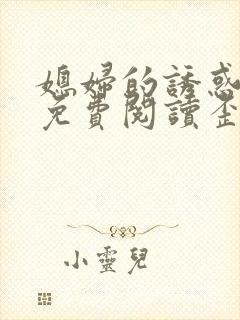 媳婦的誘惑
免費閱讀歪
小靈兒